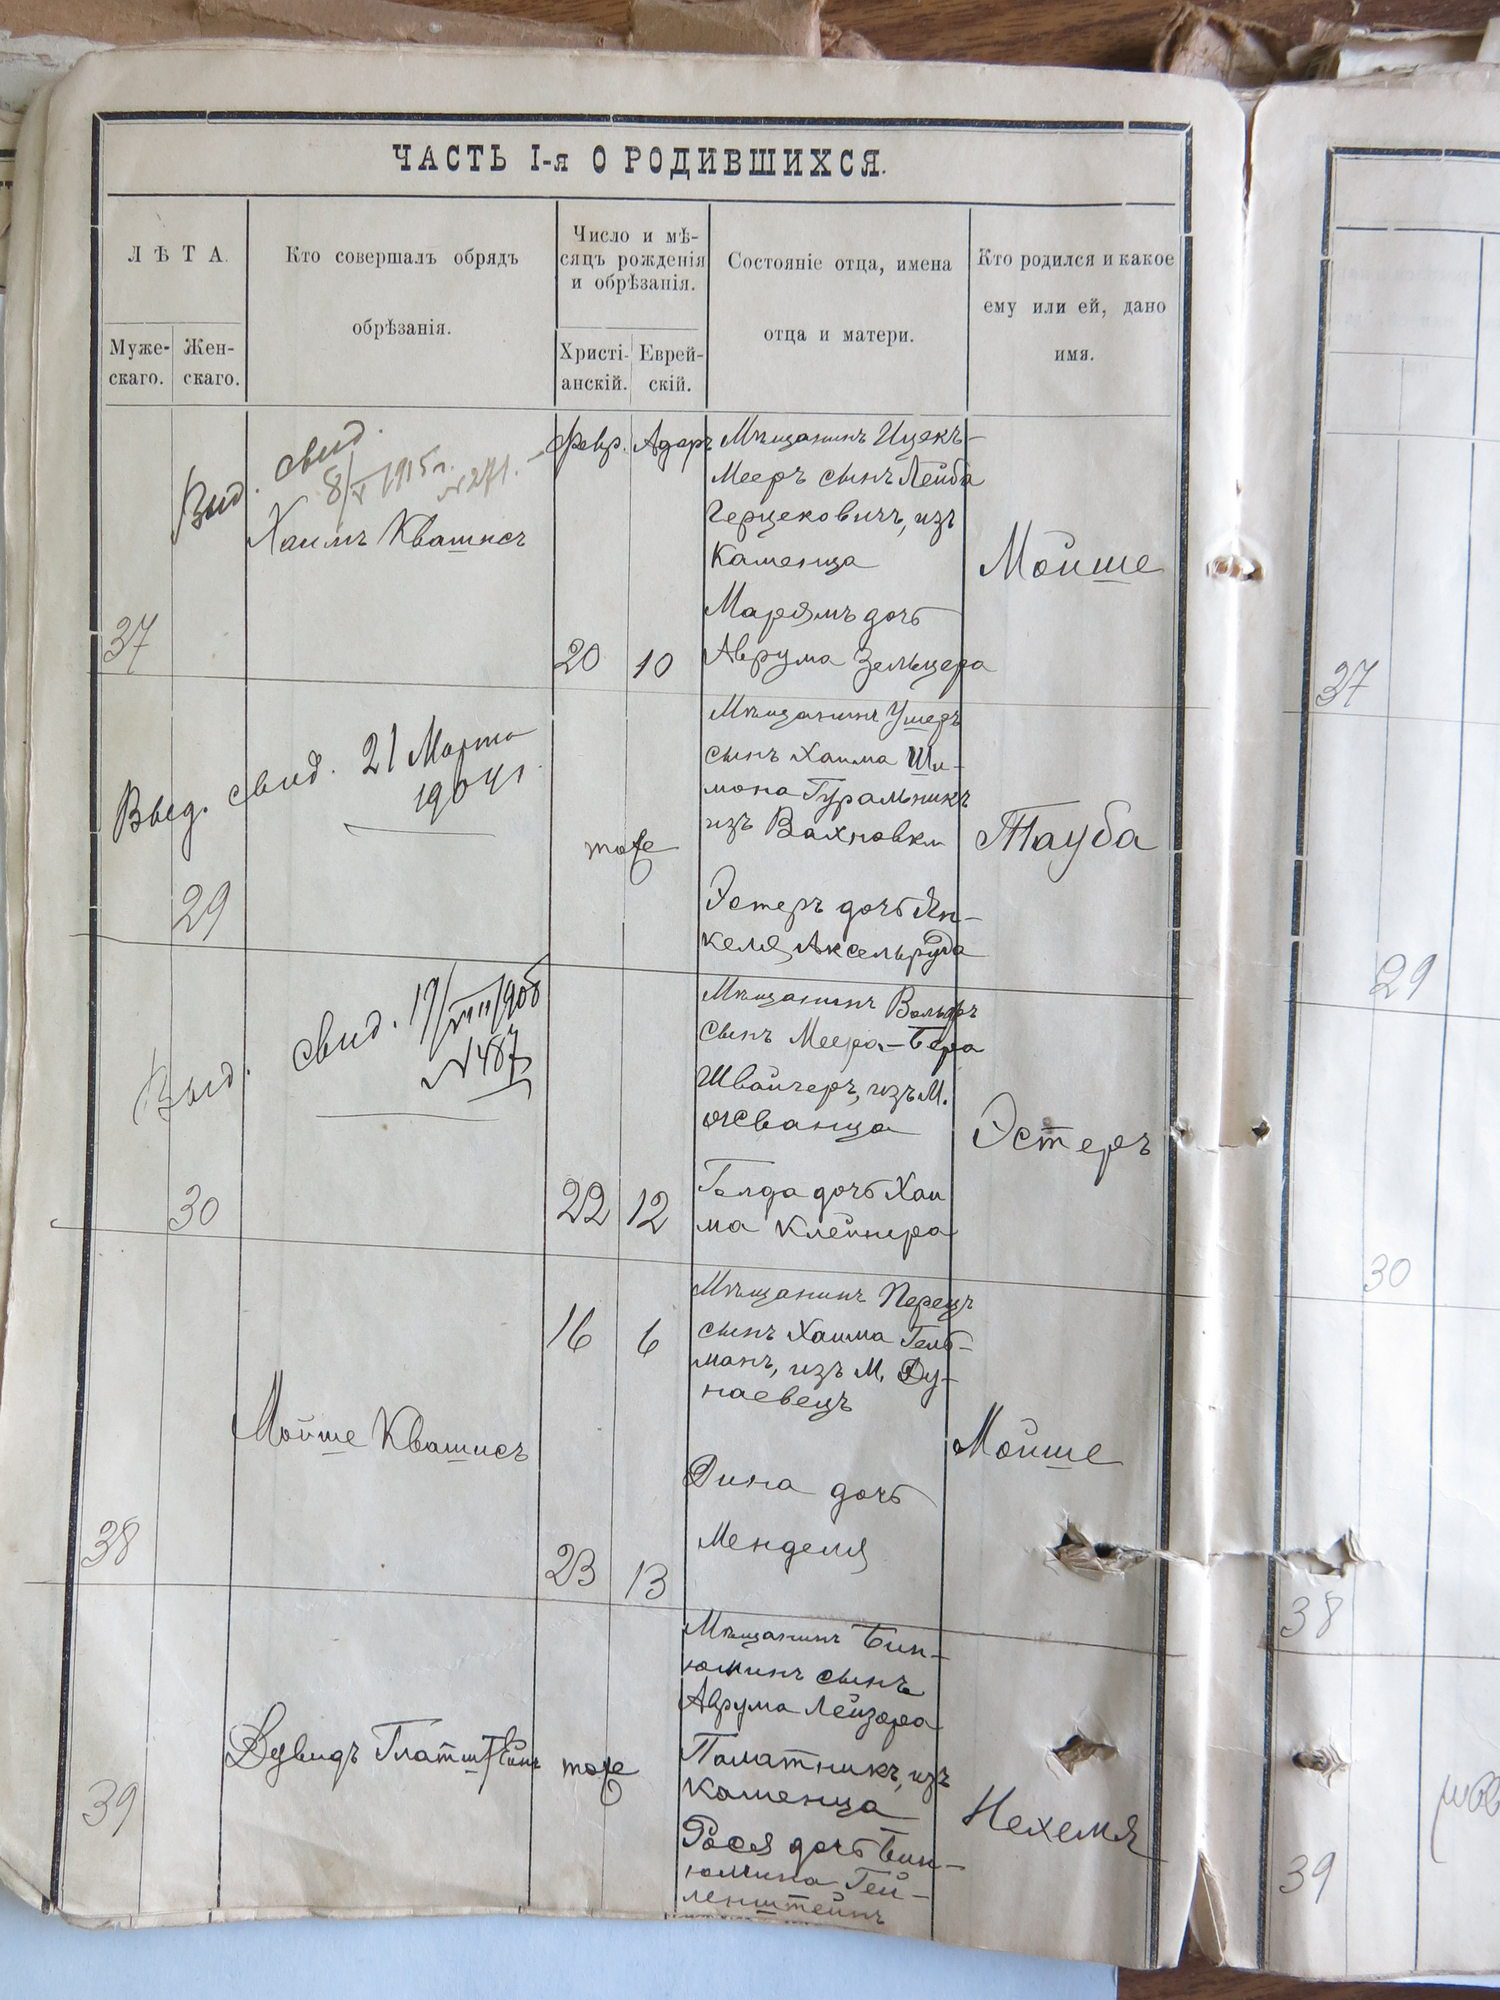 ЧАСТЬ I-я О РОДИВШИХСЯ.
ЛѢТА.
Муже-
скаго.
Жен-
скаго.
Кто совершалъ обрядъ
обрѣзанія.
Число и мѣ-
сяцъ рожденія
и обрѣзанія.
Христі-
анскій.
Еврей-
скій.
Состояніе отца, имена
отца и матери.
Кто родился и какое
ему или ей, дано
имя.
Выд. свид.
8/V 1915 г.
№ 271.
Хаимъ Квашисъ
37
Февр.
Адаръ
20
10
Мѣщанинъ Ицекъ-
Мееръ сынъ Лейба
Герцековичъ, изъ
Каменца
Маріямъ дочь
Аврума Зельцера
Мойше
Выд. свид. 21 Марта
1904 г.
29
тоже
Мѣщанинъ Ушеръ
сынъ Хаима Ши-
мона Гуральникъ
изъ Вахновки
Эстеръ дочь Ян-
келя Аксельруда
Тауба
Выд. свид. 19/VIII 1906
№ 487
30
22
12
Мѣщанинъ Вольфъ
сынъ Меера-Бера
Швайгеръ, изъ М.
Жванца
Голда дочь Хаи
ма Клейнера
Эстеръ
38
Мойше Квашисъ
16
6
23
13
Мѣщанинъ Перецъ
сынъ Хаима Гельб-
манъ, изъ М. Ду-
наевецъ
Дина дочь
Менделя
Мойше
39
Дувидъ Глатштейнъ
тоже
Мѣщанинъ Бин-
юминъ сынъ
Аврума Лейзера
Палатникъ, изъ
Каменца
Рося дочь Бин-
юмина Гей-
ленштейнъ
Нехемя
37
29
30
38
39